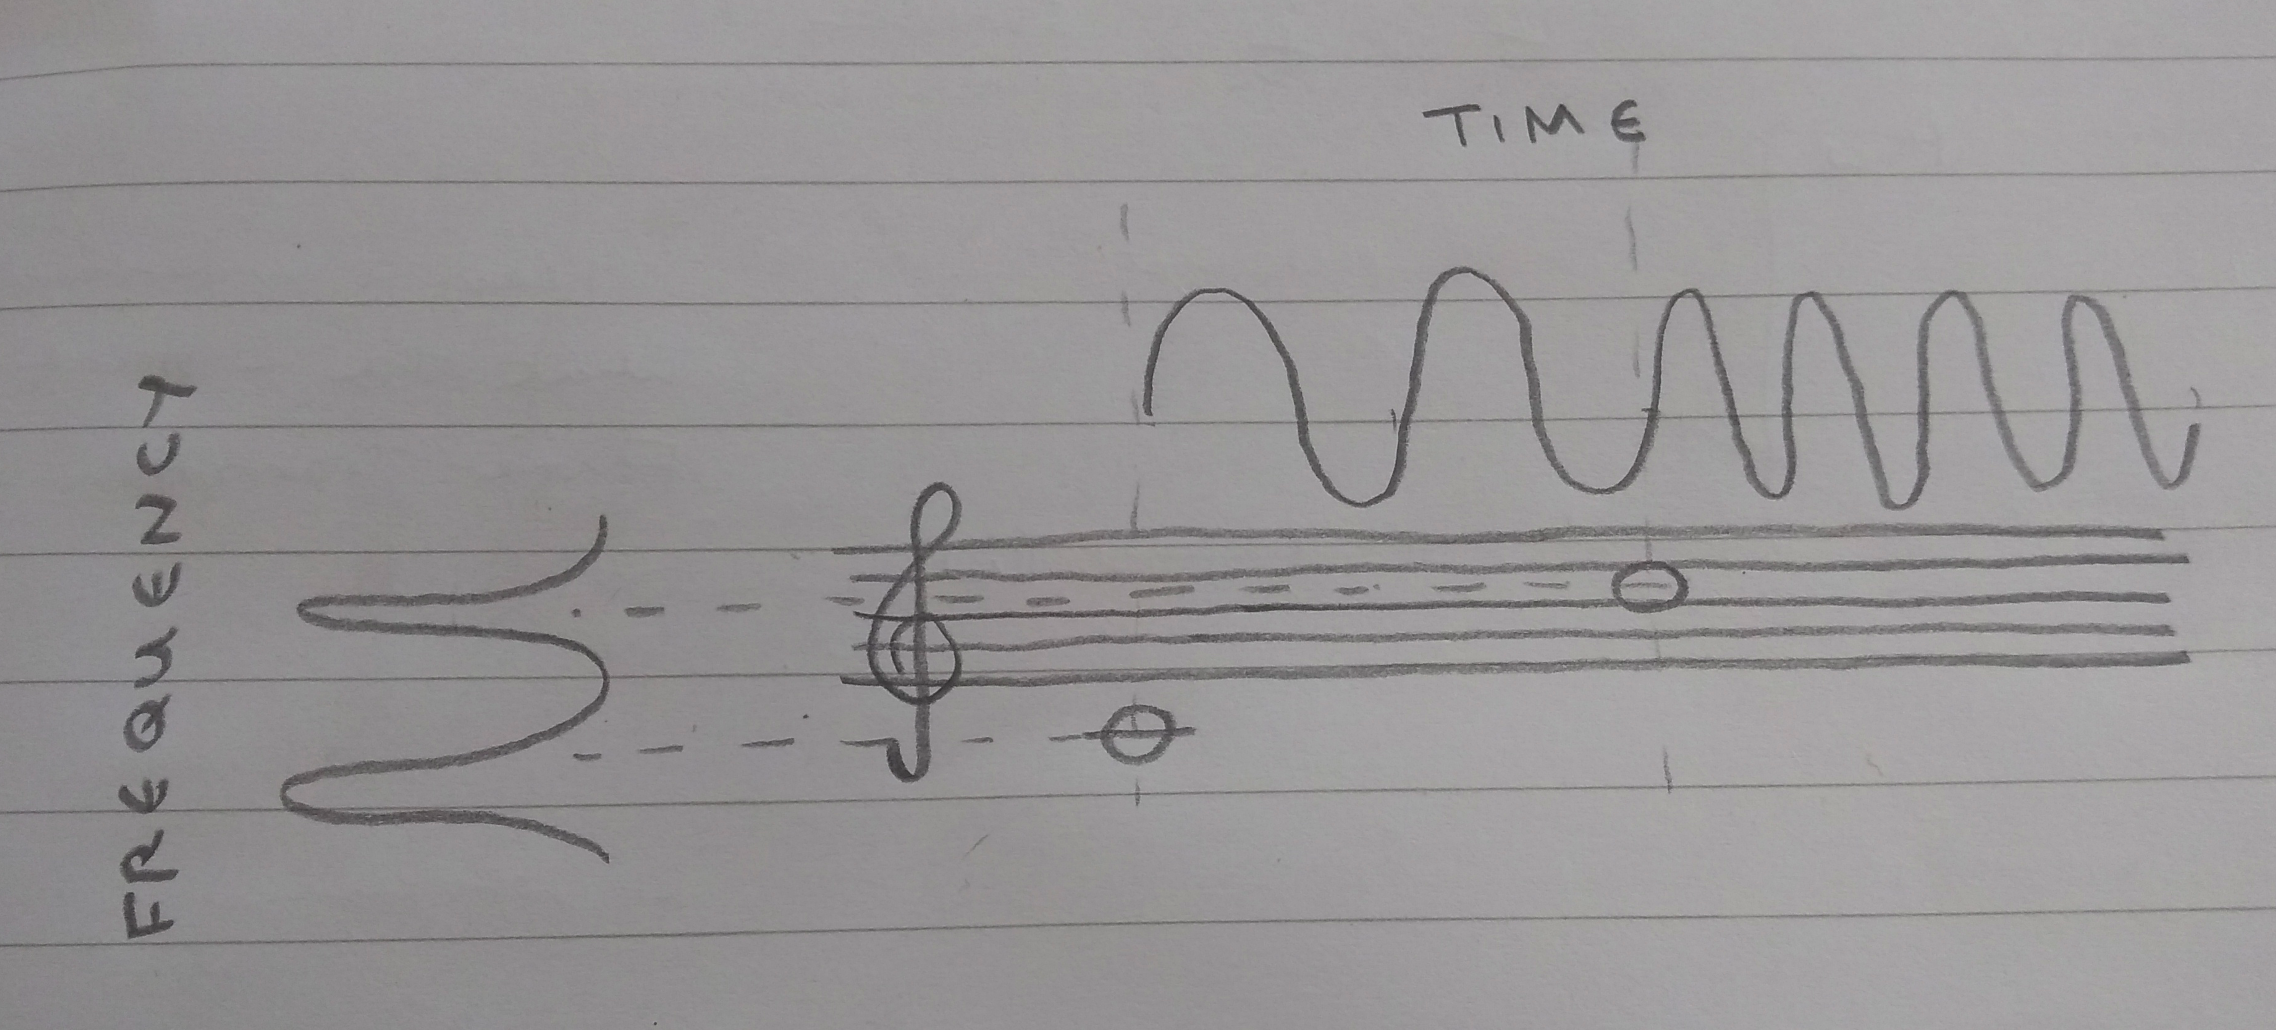 TIME
FREQUENCY